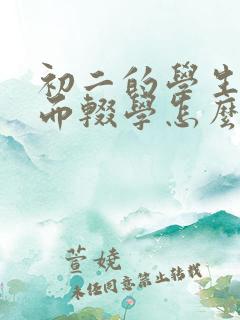 初二的學生
而輟學怎麼
萱嬈
未经同意禁止转载